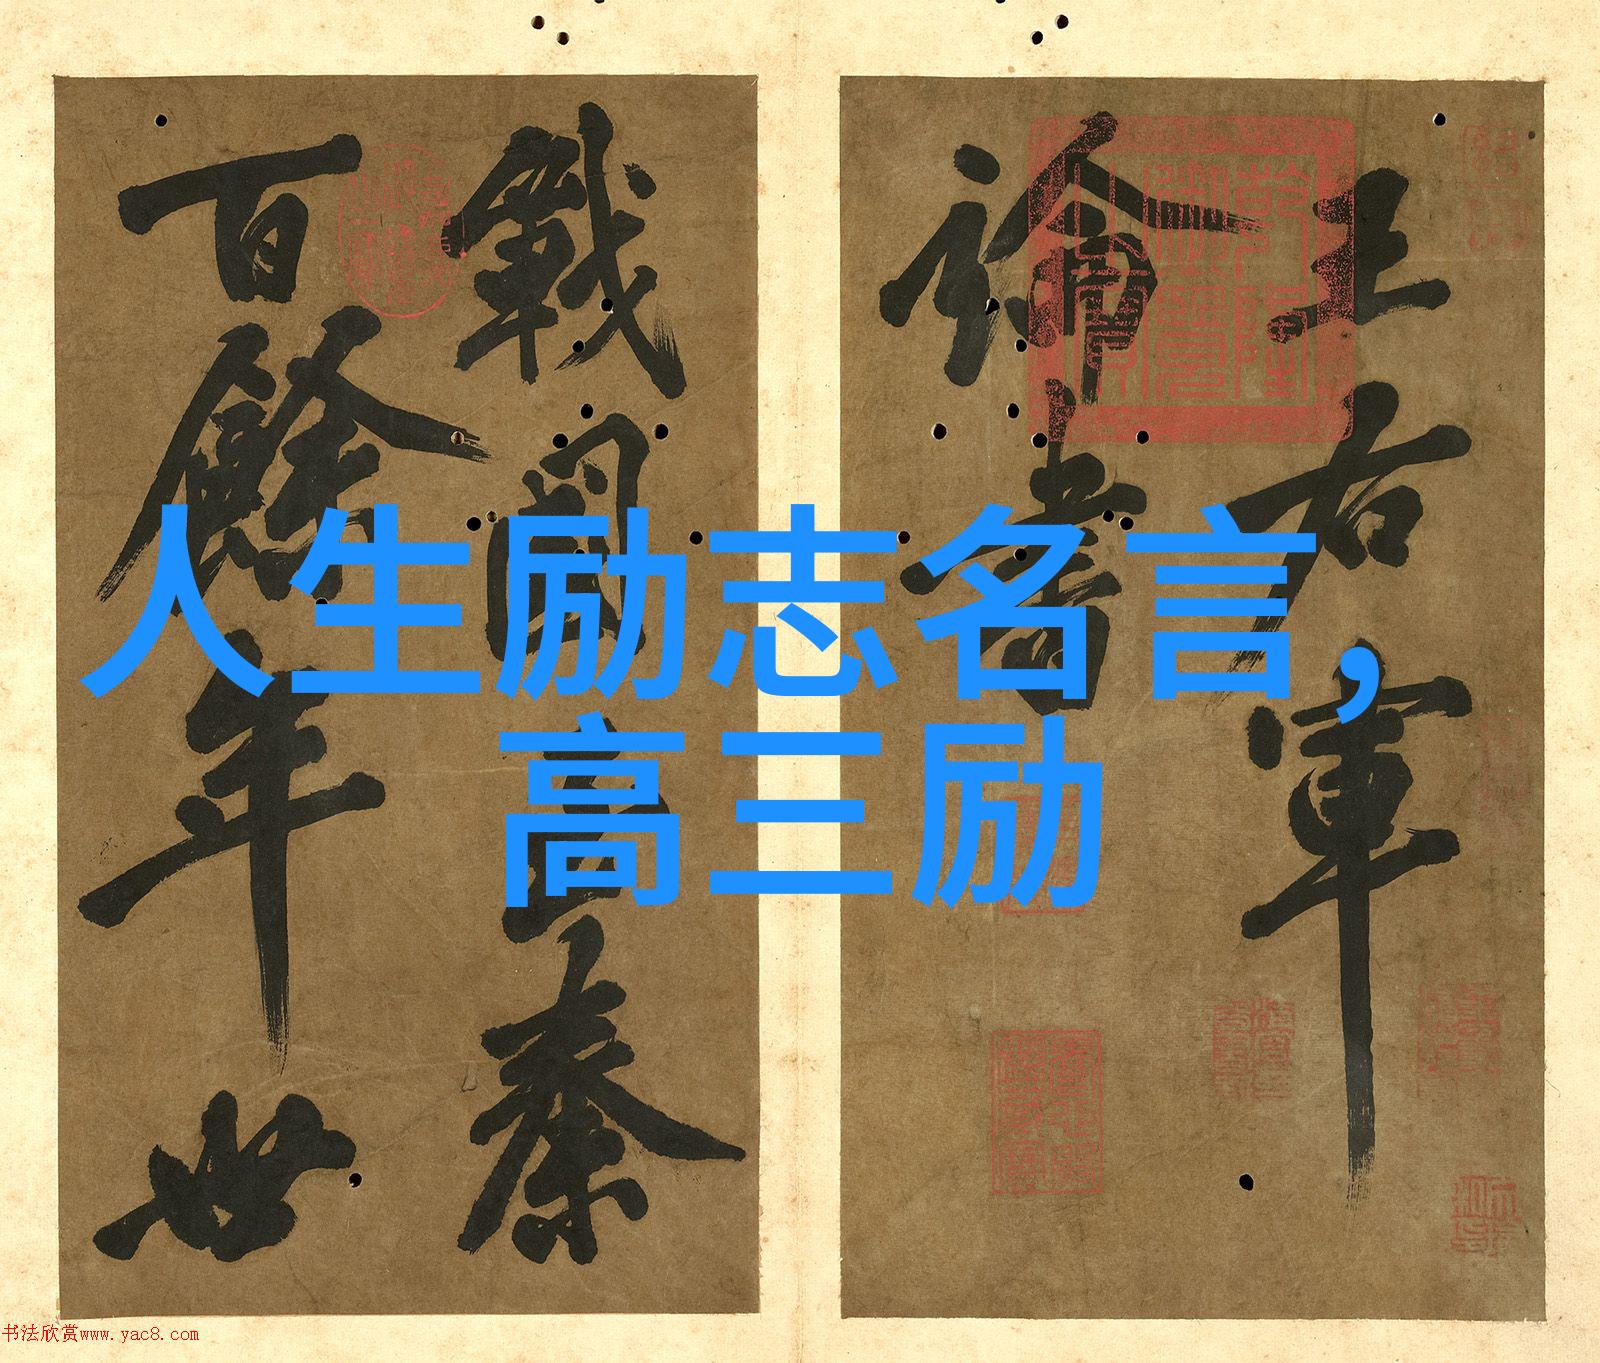 人生励志名言，
高三励
王右軍
論書
戰國秦
百餘年世
乾隆御覽之寶
书法欣赏www.yac8.com